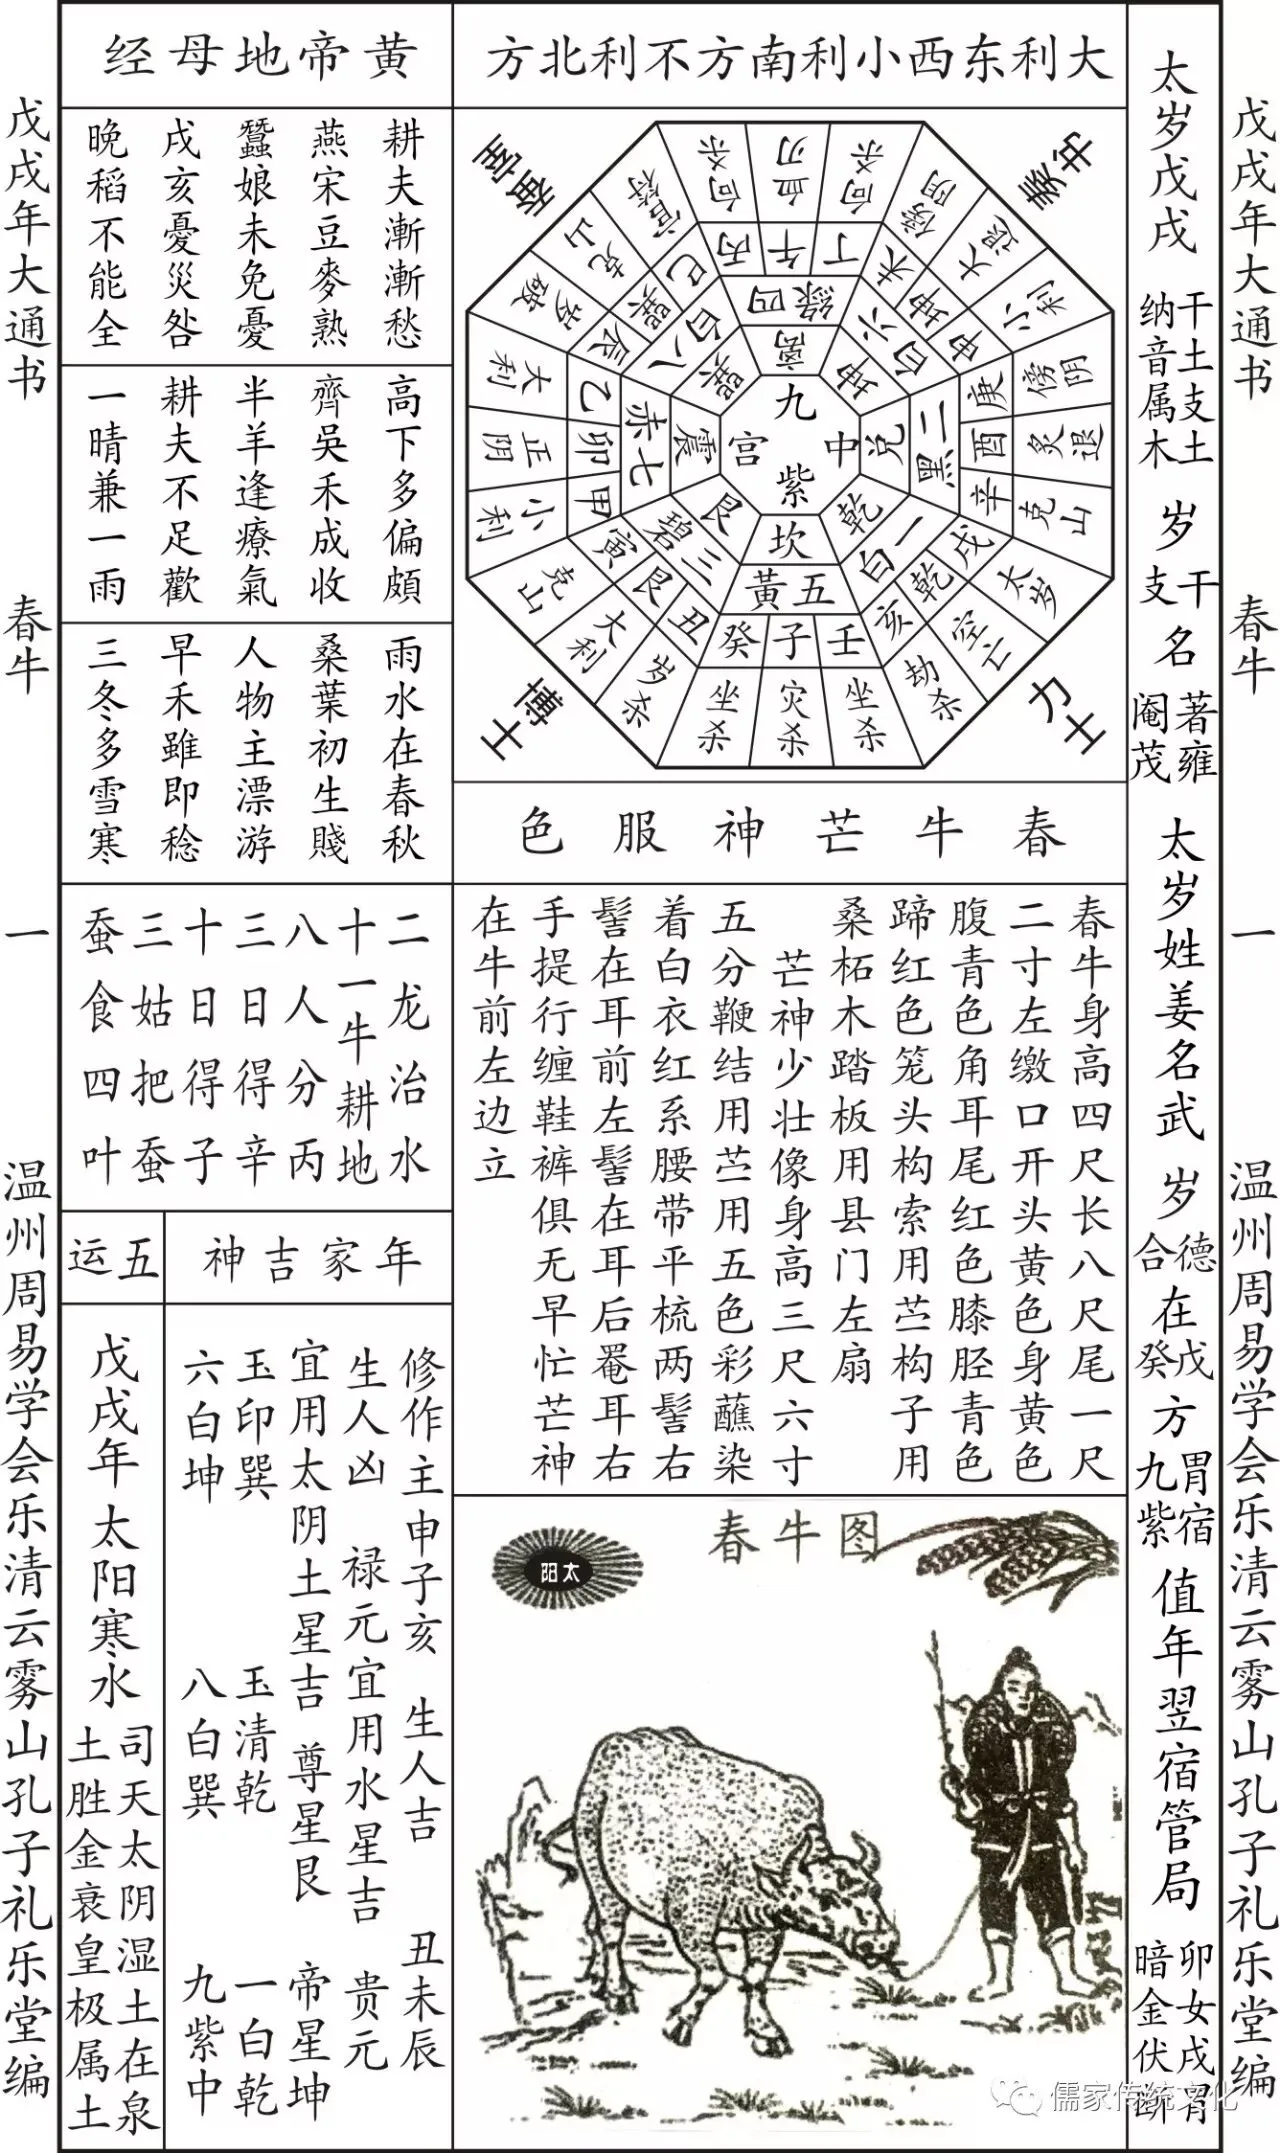 戊戌年大通书
春牛
一
温州周易学会乐清云雾山孔子礼乐堂编
太岁戊戌
干土支土
纳音属木
岁
干
支
名
著雍
阉茂
太岁姓姜名武
岁
德
合
在
戊
癸
方
胃宿
九紫
值年翌宿管局
卯女戌胃
暗金伏断
大利东西小利南方不利北方
奏书
蚕室
博士
力士
官符
向杀
血刃
向杀
傍阴
大退
小利
傍阴
炙退
克山
太岁
空亡
劫杀
坐杀
灾杀
坐杀
岁杀
大利
克山
小利
正阴
大利
岁破
克山
巳
丙
午
丁
未
坤
申
庚
酉
辛
戌
乾
亥
壬
子
癸
丑
艮
寅
甲
卯
乙
辰
巽
四綠
六白
二黑
一白
五黃
三碧
七赤
八白
离
坤
兑
乾
坎
艮
震
巽
九紫
中宫
春牛芒神服色
春牛身高四尺长八尺尾一尺
二寸左缴口开头黄色身黄色
腹青色角耳尾红色膝胫青色
蹄红色笼头构索用苎构子用
桑柘木踏板用县门左扇
芒神少壮像身高三尺六寸
五分鞭结用苎用五色彩蘸染
着白衣红系腰带平梳两髻右
髻在耳前左髻在耳后罨耳右
手提行缠鞋裤俱无早忙芒神
在牛前左边立
春牛图
太阳
黄帝地母经
耕夫漸漸愁
燕宋豆麥熟
蠶娘未免憂
戌亥憂災咎
晚稻不能全
高下多偏頗
齊吳禾成收
半羊逢療氣
耕夫不足歡
一晴兼一雨
雨水在春秋
桑葉初生賤
人物主漂游
早禾雖即稔
三冬多雪寒
二龙治水
十一牛耕地
八人分丙
三日得辛
十日得子
三姑把蚕
蚕食四叶
年家吉神
修作主申子亥 生人吉 丑未辰
生人凶 禄元宜用水星吉 贵元
宜用太阴土星吉 尊星艮 帝星坤
玉印巽 玉清乾 一白乾
六白坤 八白巽 九紫中
五运
戊戌年 太阳寒水
司天太阴湿土在泉
土胜金衰皇极属土
戊戌年大通书
春牛
一
温州周易学会乐清云雾山孔子礼乐堂编
儒家传统文化